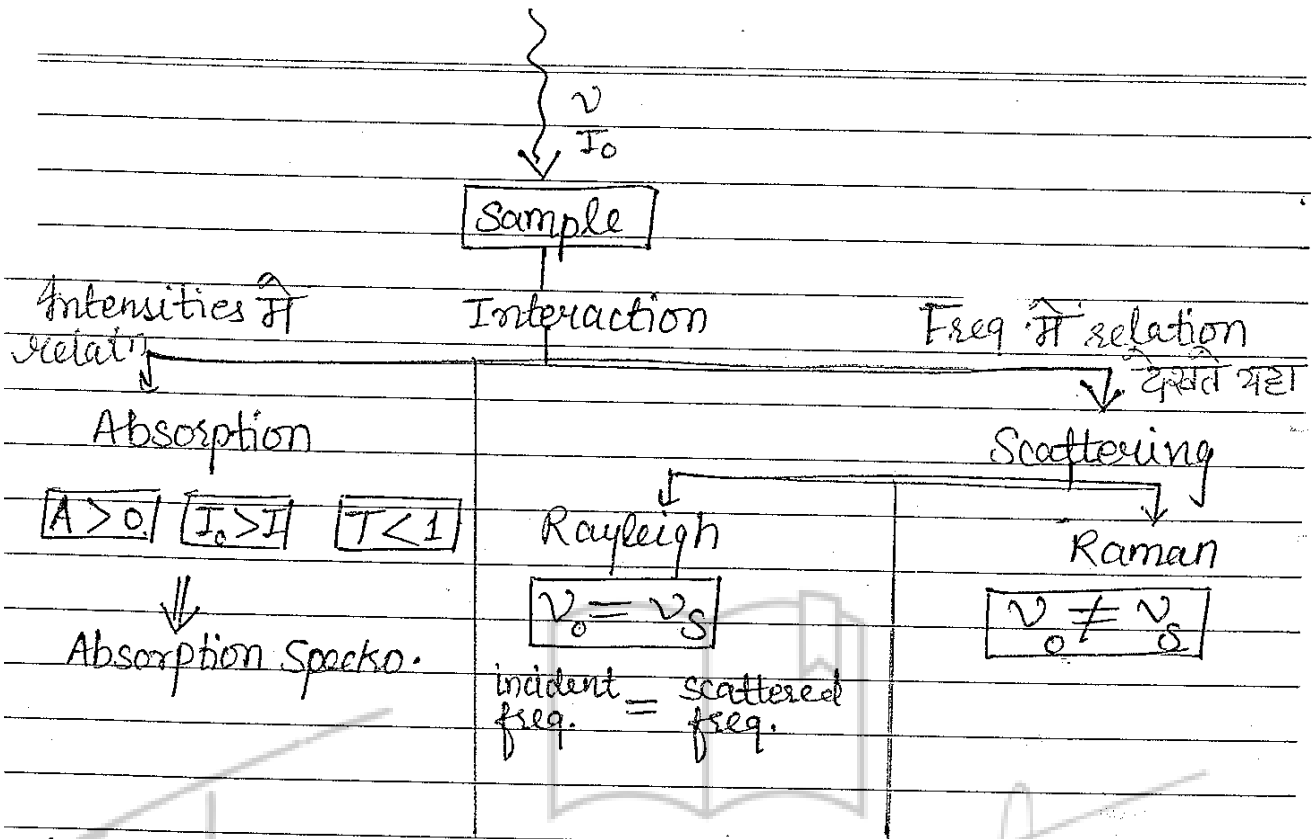 ν
I₀
Sample
Interaction
Intensities में
relatⁿ
Freq. में relation
देखते यहा
Absorption
Scattering
A > 0 I₀ > I T < 1
Rayleigh
Raman
ν₀ = νs
ν₀ ≠ νs
Absorption Spectro.
incident freq. = scattered freq.